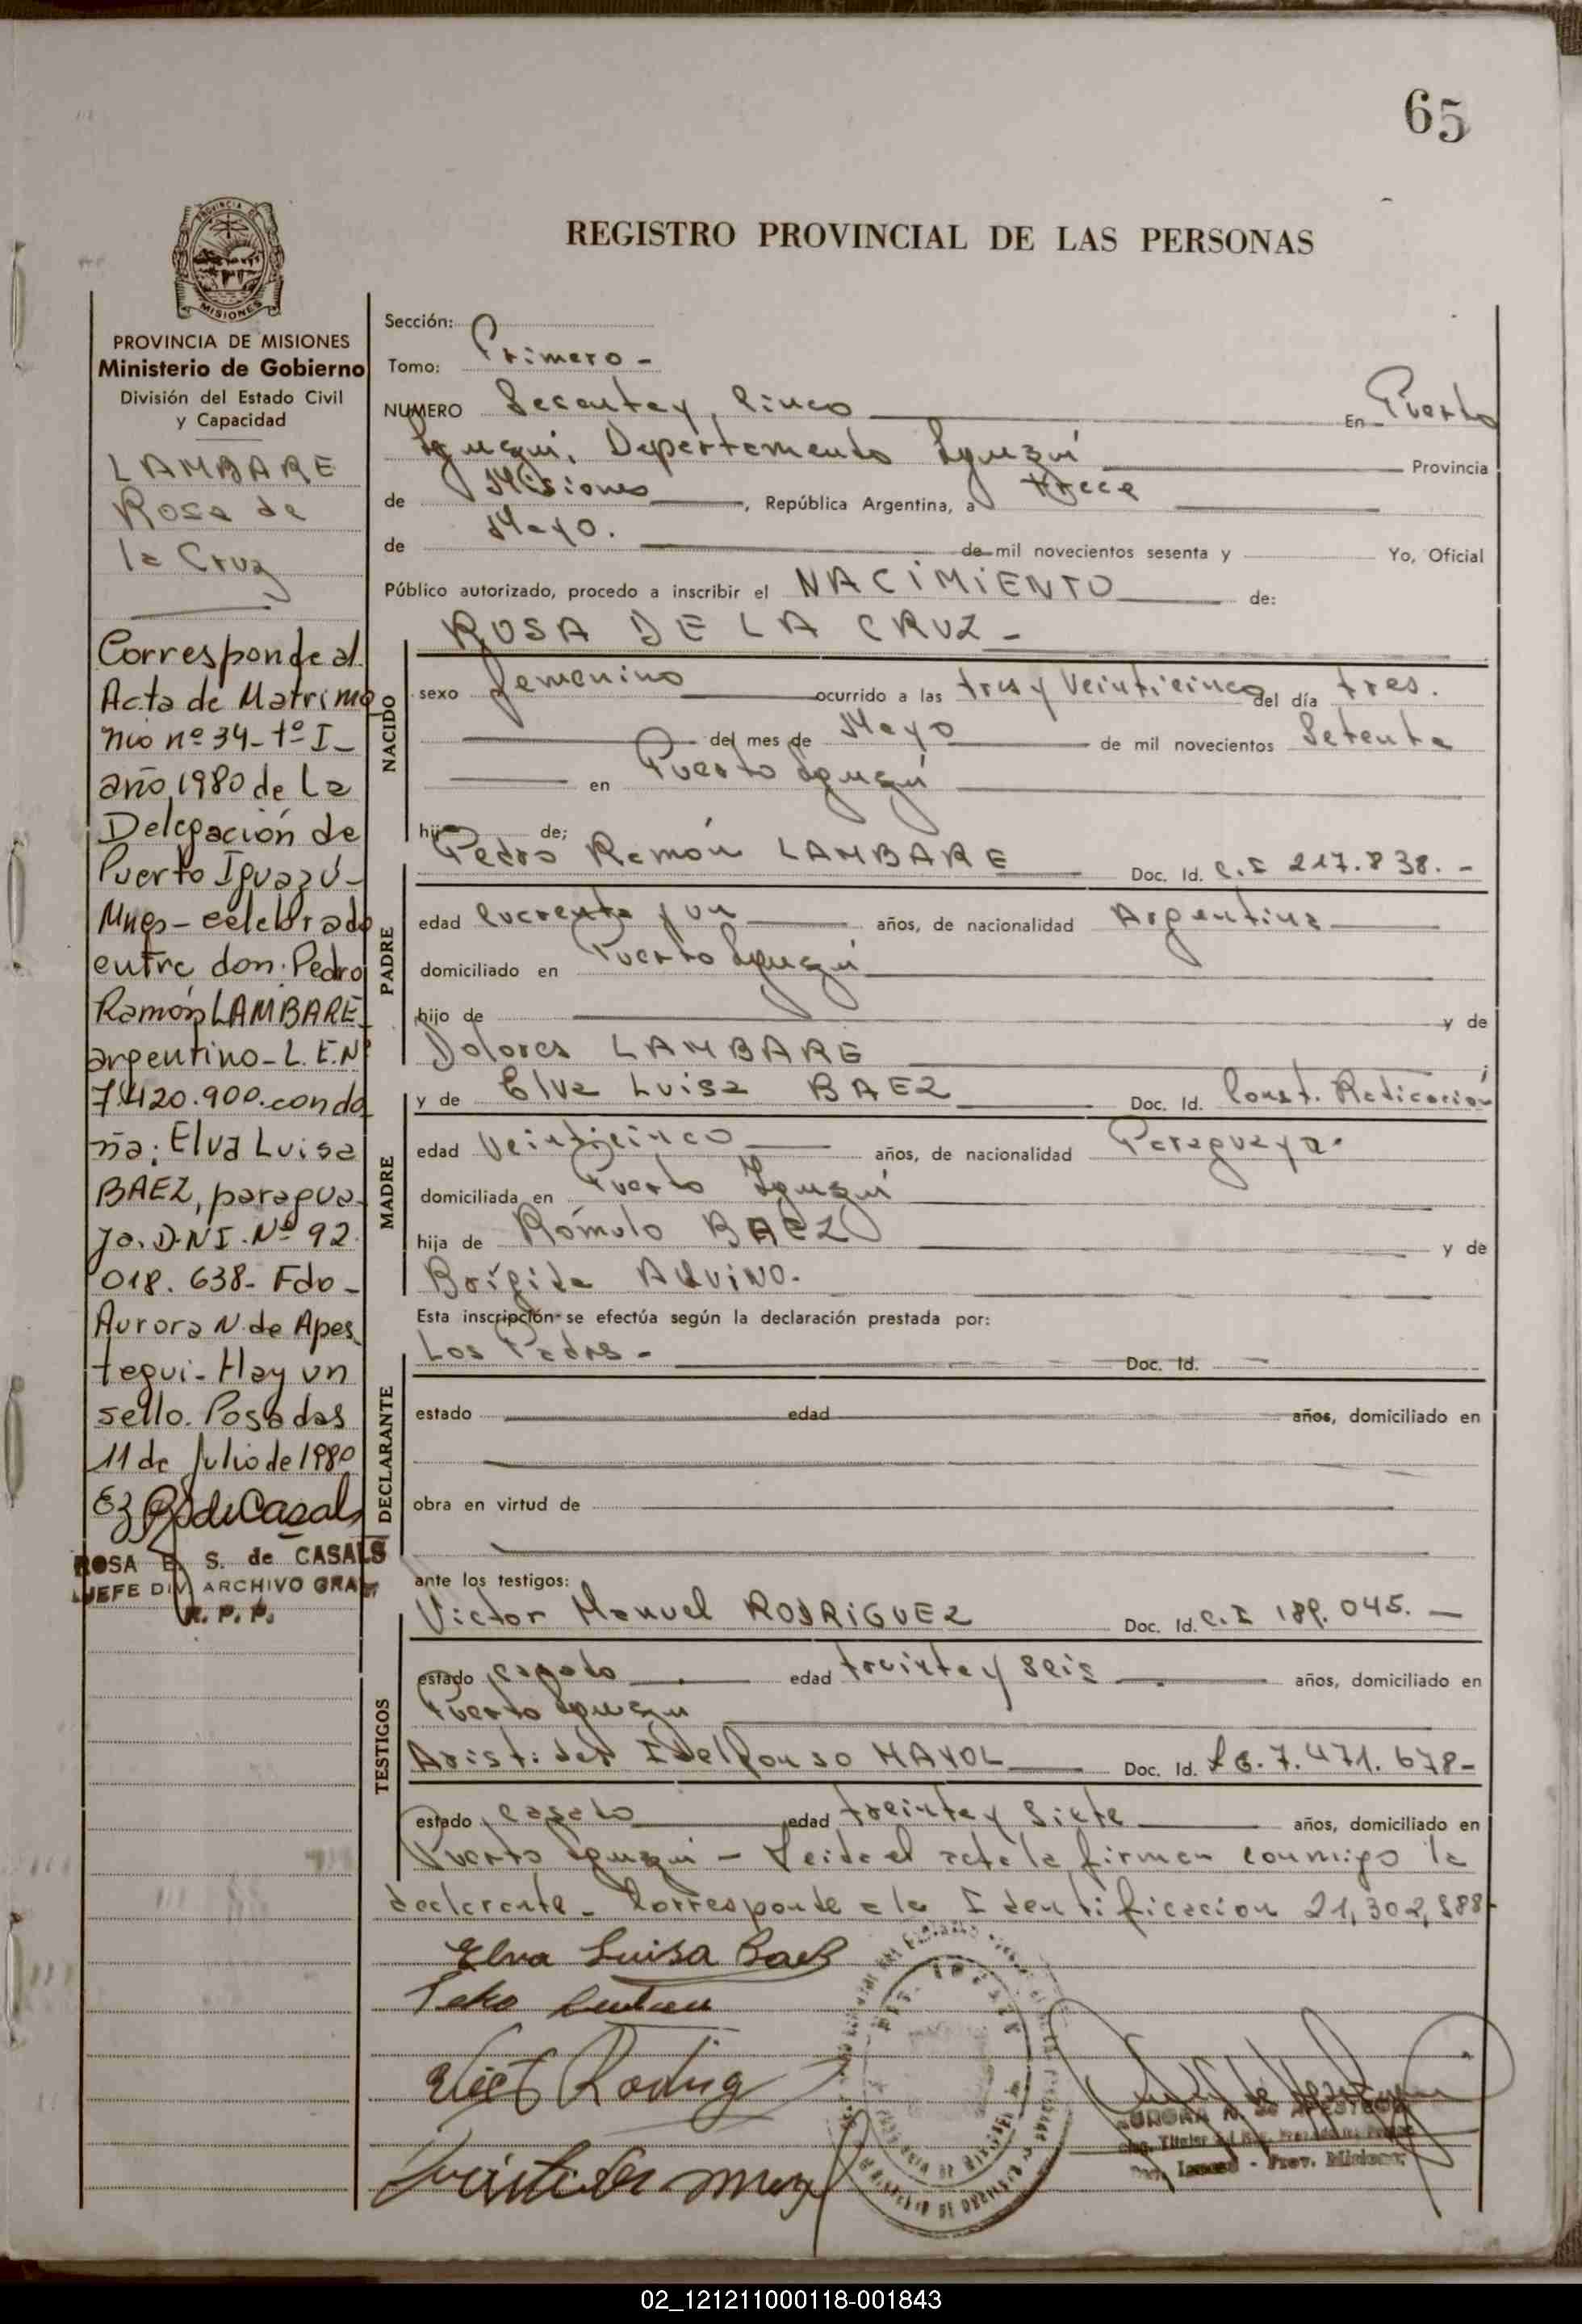 65
REGISTRO PROVINCIAL DE LAS PERSONAS
PROVINCIA DE
MISIONES
PROVINCIA DE MISIONES
Ministerio de Gobierno
División del Estado Civil
y Capacidad
LAMBARE
Rosa de
la Cruz
Corresponde al
Acta de Matrimo
nio nº 34-tº I-
año 1980 de La
Delegación de
Puerto Iguazú-
Mnes- celebrado
entre don: Pedro
Ramón LAMBARE
argentino-L.E.Nº
7.420.900.con do
ña: Elva Luisa
BAEZ, paragua-
ya. D.N.I. Nº 92.
018.638- Fdo-
Aurora N. de Apes
tegui- Hay un
sello. Posadas
11 de Julio de 1980
ROSA E. S. de CASALS
JEFE DIV. ARCHIVO GRAL
R. P. P.
Sección:
Tomo: Primero -
NUMERO Sesenta y Cinco En Puerto
Iguazú, Departamento Iguazú Provincia
de Misiones, República Argentina, a trece
de Mayo. de mil novecientos sesenta y Yo, Oficial
Público autorizado, procedo a inscribir el NACIMIENTO de:
ROSA DE LA CRUZ -
NACIDO
sexo femenino ocurrido a las tres y Veinticinco del día tres.
del mes de Mayo de mil novecientos Setenta
en Puerto Iguazú
hij de;
Pedro Ramón LAMBARE Doc. Id. C.I 217.838. -
PADRE
edad Cuarenta y un años, de nacionalidad Argentina
domiciliado en Puerto Iguazú
hijo de y de
Dolores LAMBARE
y de Elva Luisa BAEZ Doc. Id. Const. Radicación
MADRE
edad Veinticinco años, de nacionalidad Paraguaya.
domiciliada en Puerto Iguazú
hija de Rómulo BAEZ y de
Brígida ALVINO.
Esta inscripción se efectúa según la declaración prestada por:
Los Padres - Doc. Id.
DECLARANTE
estado edad años, domiciliado en
obra en virtud de
ante los testigos:
Victor Manuel RODRIGUEZ Doc. Id. C.I 189.045. -
TESTIGOS
estado casado edad treinta y seis años, domiciliado en
Puerto Iguazú
Aristides Idelfonso MAYOL Doc. Id. L.E. 7.471.678-
estado casado edad treinta y siete años, domiciliado en
Puerto Iguazú - Leida el acta la firman conmigo la
declarante - Corresponde a la Identificación 21,302,888-
Elva Luisa Baez
AURORA N. de APESTEGUI
Prov. Misiones
02_121211000118-001843